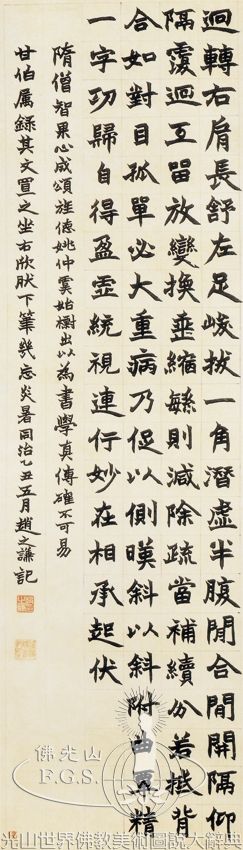 迴轉右肩長舒左足峻拔一角潛虛半腹間合間開隔仰
隔覆迴互留放變換垂縮緐則減除疏當補續分若抵背
合如對目孤單必大重病乃促以側暎斜以斜附曲覃精
一字功歸自得盈虛統視連行妙在相承起伏
隋僧智果心成頌旌德姚仲虞始出以為書學真傳確不可易
甘伯屬錄其文置之坐右欣肰下筆幾忘炎暑同治乙丑五月趙之謙記
佛光山
F.G.S.
光山世界佛教美術圖說大辭典